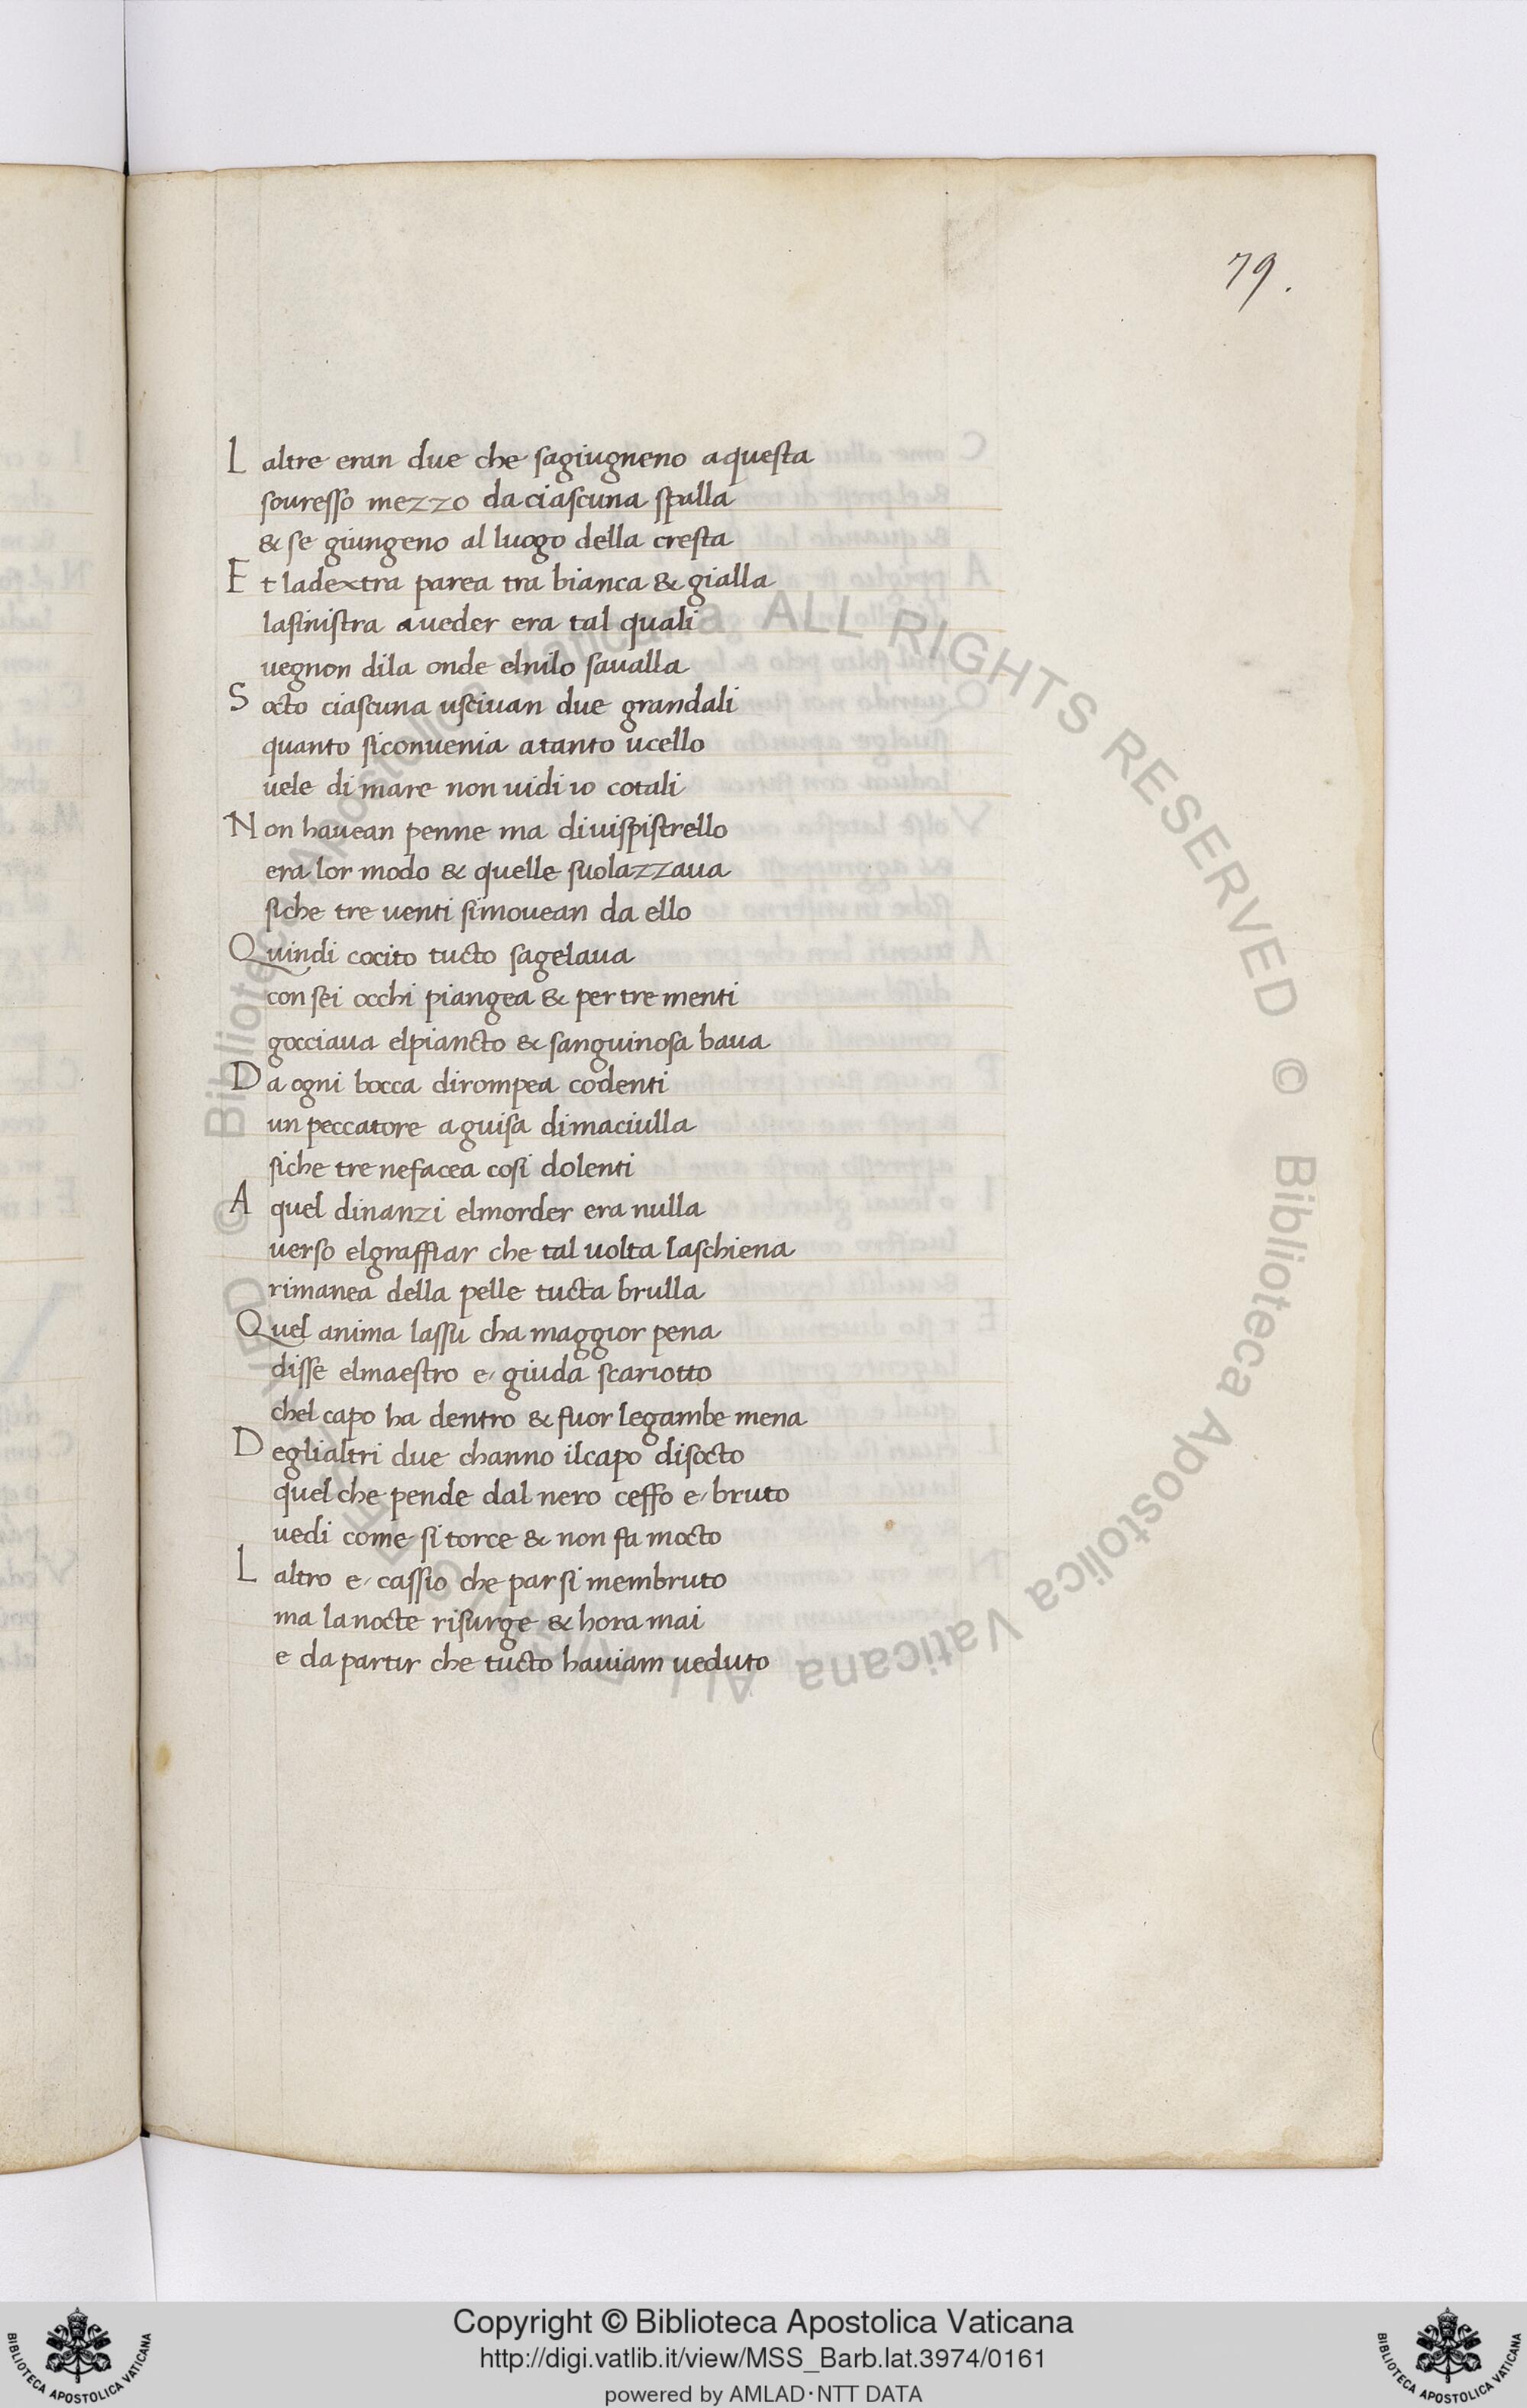 79.
L altre eran due che sagiugneno aquesta
souresso mezzo daciascuna spalla
& se giungeno al luogo della cresta
E t ladextra parea tra bianca & gialla
lasinistra aueder era tal quali
uegnon dila onde elnilo saualla
S octo ciascuna usciuan due grandali
quanto siconuenia atanto ucello
uele di mare non uidi io cotali
N on hauean penne ma diuispistrello
era lor modo & quelle suolazzaua
siche tre uenti simouean da ello
Quindi cocito tucto sagelaua
con sei occhi piangea & per tre menti
gocciaua elpiancto & sanguinosa baua
D a ogni bocca dirompea codenti
un peccatore aguisa dimaciulla
siche tre nefacea cosi dolenti
A quel dinanzi elmorder era nulla
uerso elgraffiar che tal uolta laschiena
rimanea della pelle tucta brulla
Quel anima lassu cha maggior pena
disse elmaestro e giuda scariotto
chel capo ha dentro & fuor legambe mena
D eglialtri due channo ilcapo disocto
quel che pende dal nero ceffo e bruto
uedi come si torce & non fa mocto
L altro e cassio che par si membruto
ma lanocte risurge & hora mai
e da partir che tucto hauiam ueduto
© Biblioteca Apostolica Vaticana ALL RIGHTS RESERVED © Biblioteca Apostolica Vaticana ALL RIGHTS RESERVED
Copyright © Biblioteca Apostolica Vaticana
http://digi.vatlib.it/view/MSS_Barb.lat.3974/0161
powered by AMLAD·NTT DATA
BIBLIOTECA APOSTOLICA VATICANA
BIBLIOTECA APOSTOLICA VATICANA